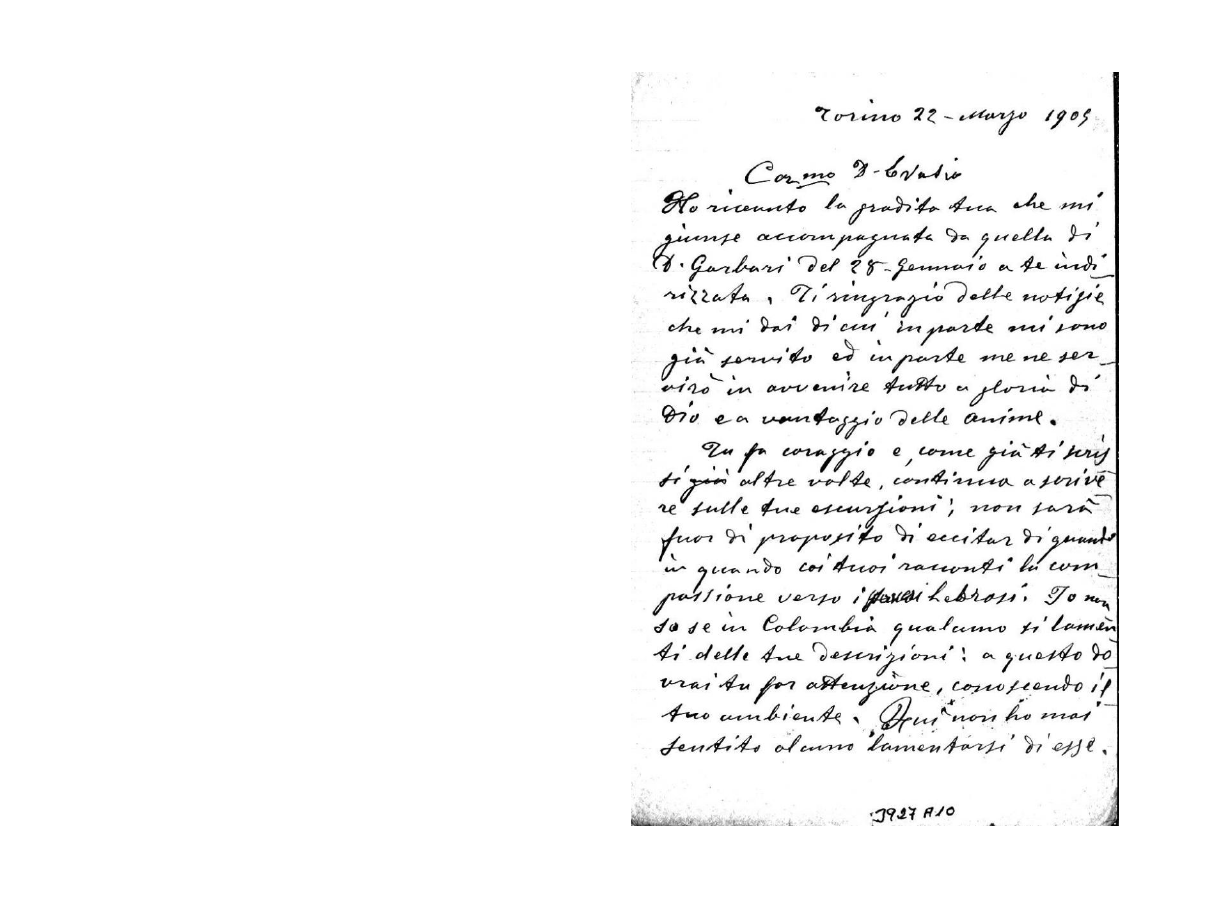 Torino 22 - Marzo 1905
Carmo D. Evasio
Ho ricevuto la gradita tua che mi
giunse accompagnata da quella di
D. Garbari del 28 - Gennaio a te indi
rizzata. Ti ringrazio delle notizie
che mi dai di cui in parte mi sono
già servito ed in parte me ne ser_
virò in avvenire tutto a gloria di
Dio e a vantaggio delle anime.
Tu fa coraggio e, come già ti scris
si già altre volte, continua a scrive
re sulle tue escursioni; non sarà
fuor di proposito di eccitar di quando
in quando coi tuoi racconti la com_
passione verso i lebrosi. Io non
so se in Colombia qualcuno si lamen
ti delle tue descrizioni: a questo do
vrai tu far attenzione, conoscendo il
tuo ambiente. Qui non ho mai
sentito alcuno lamentarsi di esse.
3927 A10